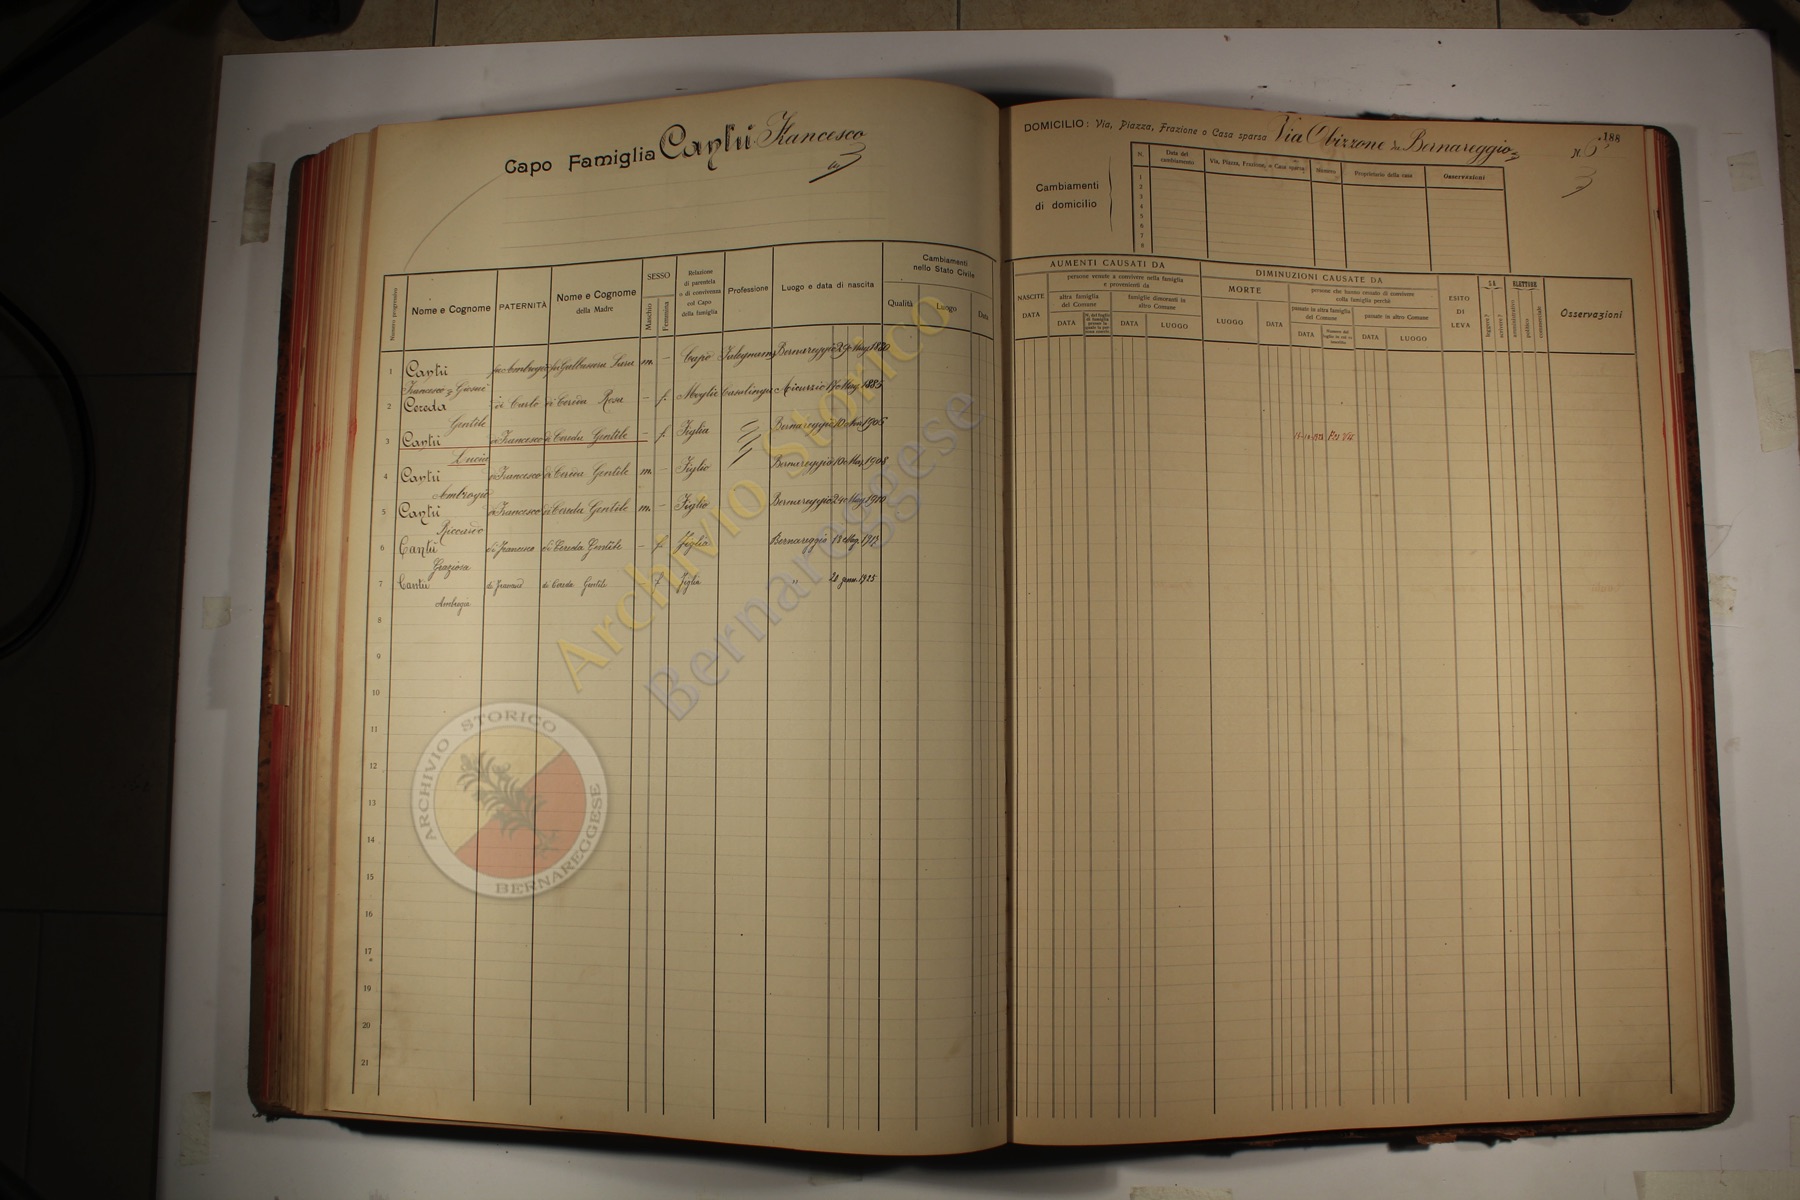 Capo Famiglia Cantù Francesco
DOMICILIO: Via, Piazza, Frazione o Casa sparsa Via Obizzone da Bernareggio N. 6
188
3
Cambiamenti
di domicilio
N. Data del cambiamento Via, Piazza, Frazione, o Casa sparsa Numero Proprietario della casa Osservazioni
1
2
3
4
5
6
7
8
Numero progressivo
Nome e Cognome
PATERNITÀ
Nome e Cognome
della Madre
SESSO
Maschio
Femmina
Relazione
di parentela
o di convivenza
col Capo
della famiglia
Professione
Luogo e data di nascita
Cambiamenti
nello Stato Civile
Qualità
Luogo
Data
AUMENTI CAUSATI DA
NASCITE
DATA
persone venute a convivere nella famiglia
e provenienti da
altra famiglia
del Comune
DATA
famiglie dimoranti in
altro Comune
DATA LUOGO
DIMINUZIONI CAUSATE DA
MORTE
LUOGO DATA
persone che hanno cessato di convivere
colla famiglia perchè
passate in altra famiglia
del Comune
DATA
passate in altro Comune
DATA LUOGO
ESITO
DI
LEVA
SA
leggere?
scrivere?
ELETTORE
amministrativo
politico
commerciale
Osservazioni
1 Cantù fu Ambrogio m. – Capo Bernareggio 1880
Francesco
2 Cereda di Carlo di Rosa – f. Moglie Casalinga 1885
Gentile
3 Cantù di Francesco di Cereda Gentile – f. Figlia Bernareggio 1905
Lucia
4 Cantù di Francesco di Cereda Gentile m. – Figlio Bernareggio 10 1908
Ambrogio
5 Cantù di Francesco di Cereda Gentile m. – Figlio Bernareggio 24 1910
Riccardo
6 Cantù di Francesco di Cereda Gentile – f. Figlia Bernareggio 13
Graziosa
7 Cantù di di Cereda Gentile f Figlia " 28 genn. 1925
Ambrogia
8
9
10
11
12
13
14
15
16
17
19
20
21
Archivio Storico
Bernareggese
ARCHIVIO STORICO
BERNAREGGESE